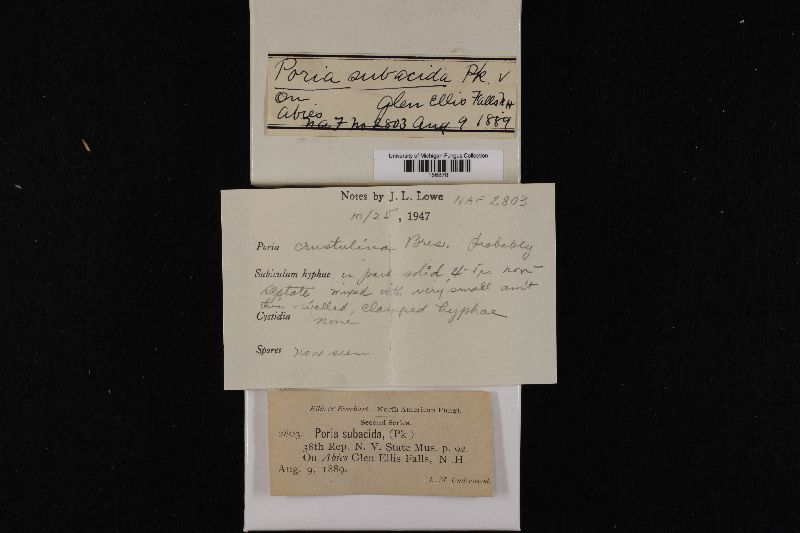 Poria subacida Pk. v
On Glen Ellis Falls N H
Abies
NAF No 2803 Aug 9 1889
University of Michigan Fungus Collection
Notes by J. L. Lowe NAF 2803
10/25, 1947
Poria crustulina Bres. probably
Subiculum hyphae in part solid, 4-5µ non-
septate mixed with very small am't
thin walled, clamped hyphae
Cystidia none
Spores none seen
Ellis & Everhart. North American Fungi.
Second Series.
2803. Poria subacida, (Pk.)
38th Rep. N. Y. State Mus. p. 92.
On Abies Glen Ellis Falls, N. H
Aug. 9, 1889.
L. M. Underwood.